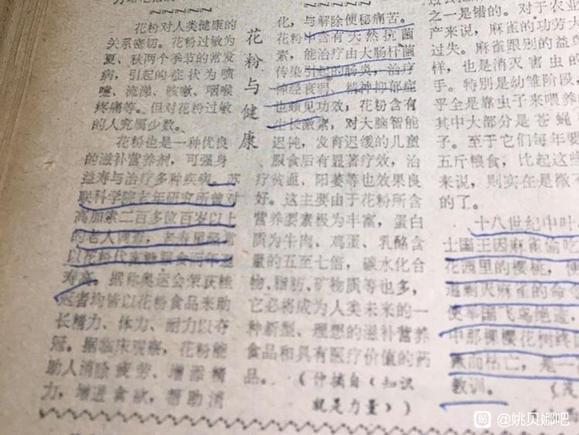 花粉与健康
花粉对人类健康的
关系密切。花粉过敏为
夏、秋两个季节的常发
病，引起的症状为喷
嚏、流涕、咳嗽、咽喉
疼痛等。但对花粉过敏
的人究属少数。
花粉也是一种优良
的滋补营养剂，可强身
益寿与治疗多种疾病。苏
联科学院老年研究所曾对
高加索二百多位百岁以上
的老人调查，
以花粉
寿高。据称奥运会荣获桂
冠者均皆以花粉食品来助
长精力、体力、耐力以夺
冠。据临床观察，花粉能
助人消除疲劳、增添精
力，增进食欲，帮助消
化，与解除便秘痛苦。
花粉中含有天然抗菌
素，能治疗由大肠杆菌
传染引起的肠炎，治疗
神经衰弱、精神抑郁症
也颇见功效，花粉含有
生长激素，对大脑智能
迟钝，发育迟缓的儿童
服食后有显著疗效，治
疗贫血、阳萎等也效果良
好。这主要由于花粉所含
营养要素极为丰富，蛋白
质为牛肉、鸡蛋、乳酪含
量的五至七倍，碳水化合
物、脂肪、矿物质等也多，
它必将成为人类未来的一
种新型、理想的滋补营养
食品和具有医疗价值的药
品。（作摘自《知识
就是力量》）
之一是错的。对于农业
产来说，麻雀的功劳大
过失。麻雀跟别的益鸟
样，也是消灭害虫的
手。特别是幼雏阶段
乎全是靠虫子来喂养
其中大部分是苍蝇
子。至于它们每年要
五斤粮食，比起这些
来说，则实在是微不
的了。
十八世纪中叶
士国王因麻雀偷吃
花园里的樱桃，便
道剿灭麻雀的命令
使军国飞鸟绝迹，
中那棵樱花树终因
而枯亡，是一
教训。
@姚贝娜吧